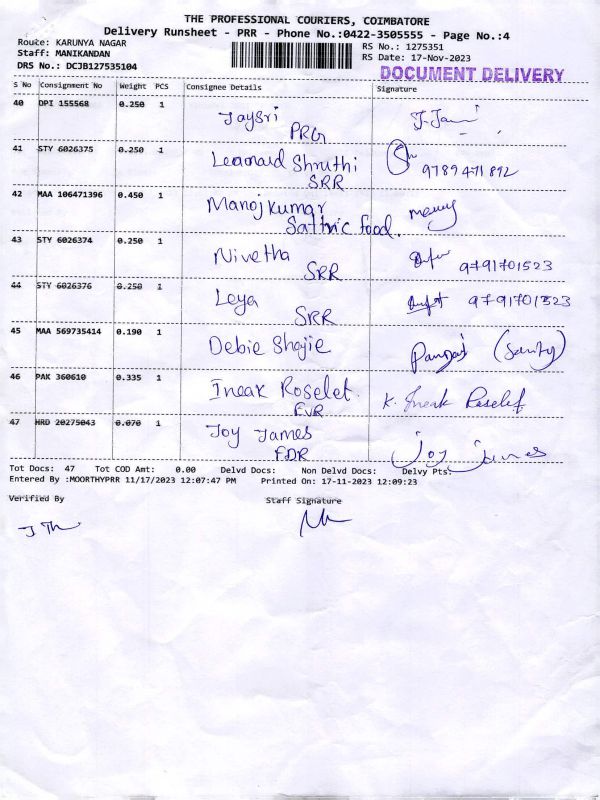 THE PROFESSIONAL COURIERS, COIMBATORE
Delivery Runsheet - PRR - Phone No.:0422-3505555 - Page No.:4
Route: KARUNYA NAGAR
RS No.: 1275351
Staff: MANIKANDAN
RS Date: 17-Nov-2023
DRS No.: DCJB127535104
DOCUMENT DELIVERY
S No Consignment No Weight PCS Consignee Details Signature
40 DPI 155568 0.250 1 Jaysri J. Jami
PRG
41 STY 6026375 0.250 1 Leonard Shruthi 9789471892
SRR
42 MAA 106471396 0.450 1 Manoj kumar
Sattric food.
43 STY 6026374 0.250 1 Nivetha 9791701523
SRR
44 STY 6026376 0.250 1 Leya 9791701523
SRR
45 MAA 569735414 0.190 1 Debie Shajie
46 PAK 360610 0.335 1 Ineak Roselet. K. Ineak Roselet
EVR
47 HRD 20275043 0.070 1 Joy James Joy James
EDR
Tot Docs: 47 Tot COD Amt: 0.00 Delvd Docs: Non Delvd Docs: Delvy Pts:
Entered By :MOORTHYPRR 11/17/2023 12:07:47 PM Printed On: 17-11-2023 12:09:23
Verified By Staff Signature